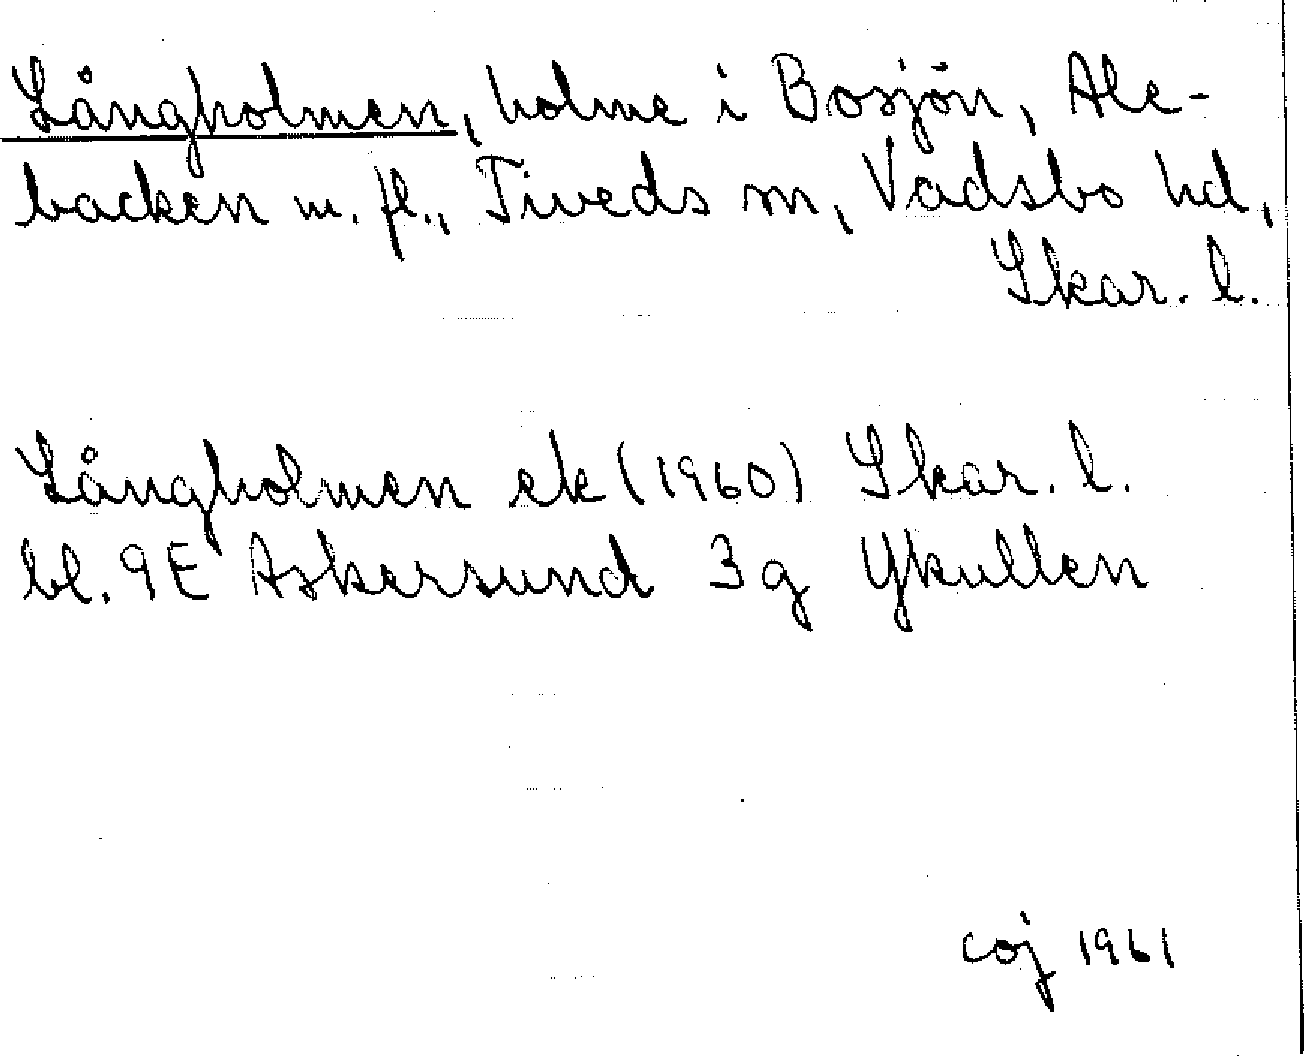 Långholmen, holme i Bosjön, Ale-
backen m. fl., Tiveds sn, Vadsbo hd,
Skar. l.
Långholmen ek (1960) Skar. l.
bl. 9E Askersund 3g Ykullen
coj 1961